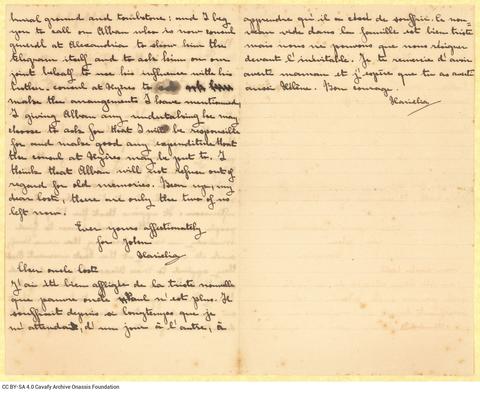 burial ground and tombstone; and I beg
you to call on Alban who is now consul
general at Alexandria to show him the
telegram itself and to ask him on our
joint behalf to use his influence with his
consul at Hyères to
make the arrangements I have mentioned,
I giving Alban any undertaking he may
choose to ask for that I will be responsible
for and make good any expenditure that
the consul at Hyères may be put to. I
think that Alban will not refuse out of
regard for old memories. Bear up, my
dear Costi, there are only the two of us
left now.
Ever yours affectionately
for John
Hariclia
Cher oncle Costi
J'ai été bien affligée de la triste nouvelle
que pauvre oncle Paul n'est plus. Il
souffrait depuis si longtemps que je
m'attendais, d'un jour à l'autre, à
apprendre qu'il a cessé de souffrir. Ce nou-
veau vide dans la famille est bien triste
mais nous ne pouvons que nous résigner
devant l'inévitable. Je te remercie d'avoir
averti maman et j'espère que tu as averti
aussi Hélène. Bon courage.
Hariclia
CC BY-SA 4.0 Cavafy Archive Onassis Foundation